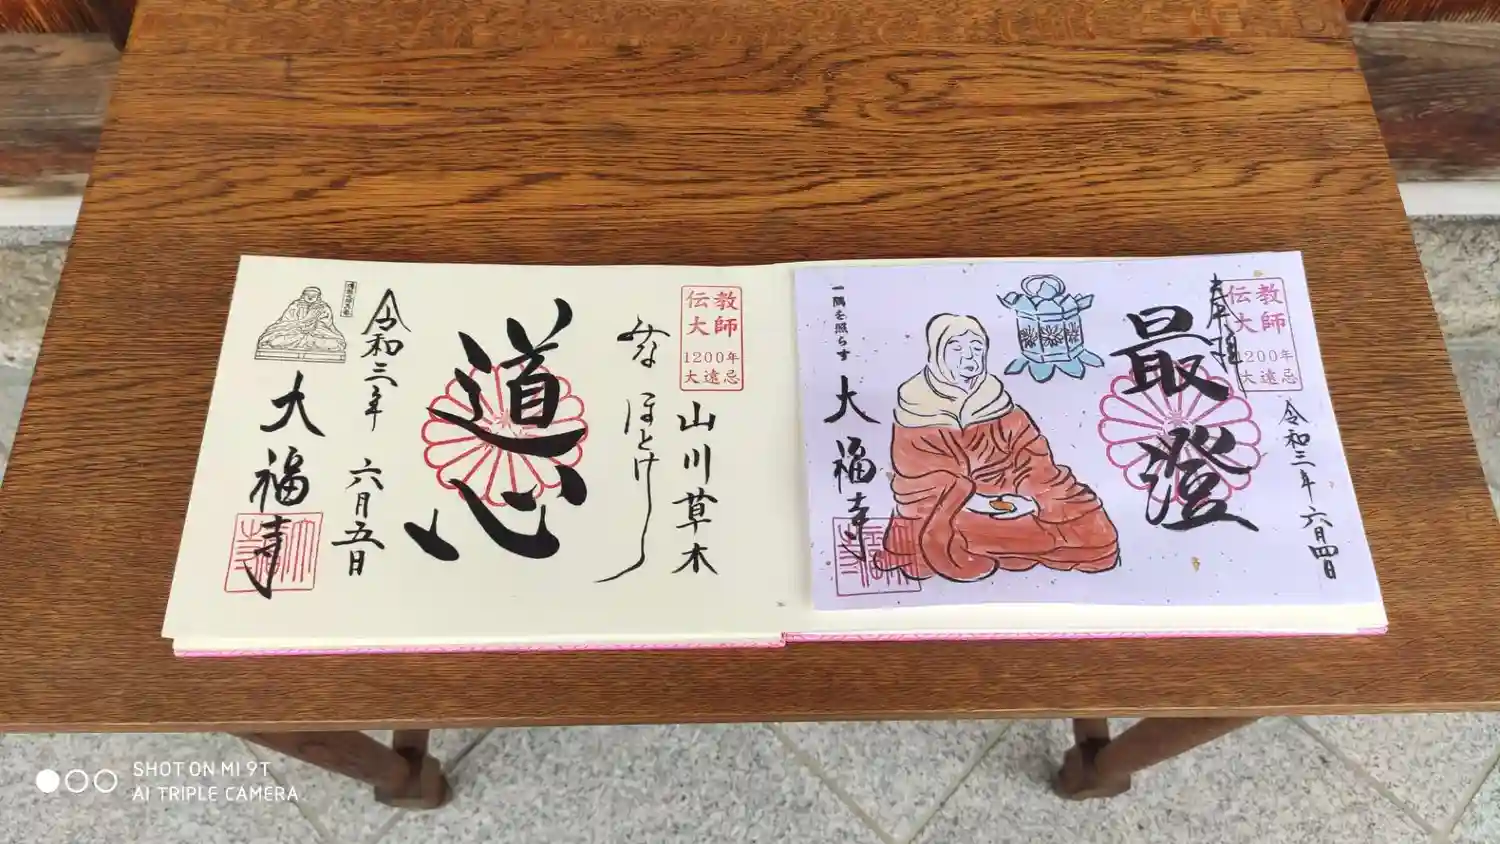 奉拝
伝教大師
1200年
大遠忌
最澄
令和三年六月四日
一隅を照らす
大福寺
伝教大師
1200年
大遠忌
山川草木
みなほとけ
道心
令和三年
六月五日
大福寺
SHOT ON MI 9T
AI TRIPLE CAMERA